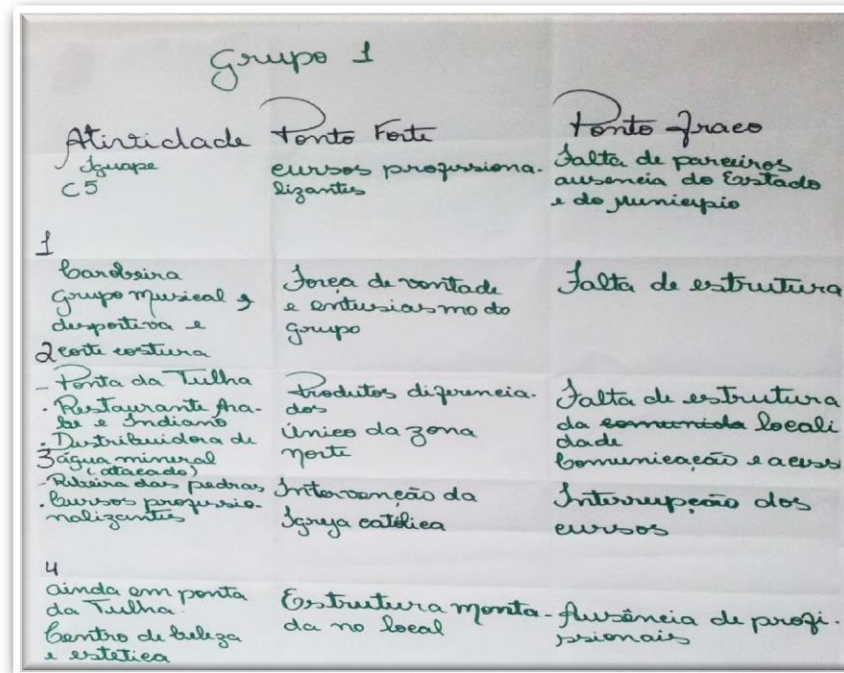 Grupo 1
Atividade Ponto Forte Ponto Fraco
Iguape
C5
cursos profissiona-
lizantes
Falta de parceiros
ausencia do Estado
e do Municipio
1
Carobeira
Grupo Musical
desportiva e
2 corte costura
Força de vontade
e entusiasmo do
grupo
Falta de estrutura
- Ponta da Tulha
. Restaurante Ára-
be e Indiano
. Distribuidora de
3 água mineral
(atacado)
Produtos diferencia-
dos
Único da zona
norte
Falta de estrutura
da comunida locali
dade
Comunicação e acess
- Ribeira das pedras
. Cursos profissio-
nalizantes
Intervenção da
Igreja católica
Interrupção dos
cursos
4
ainda em ponta
da Tulha.
Centro de beleza
e estetica
Estrutura monta-
da no local
Ausência de profi-
ssionais